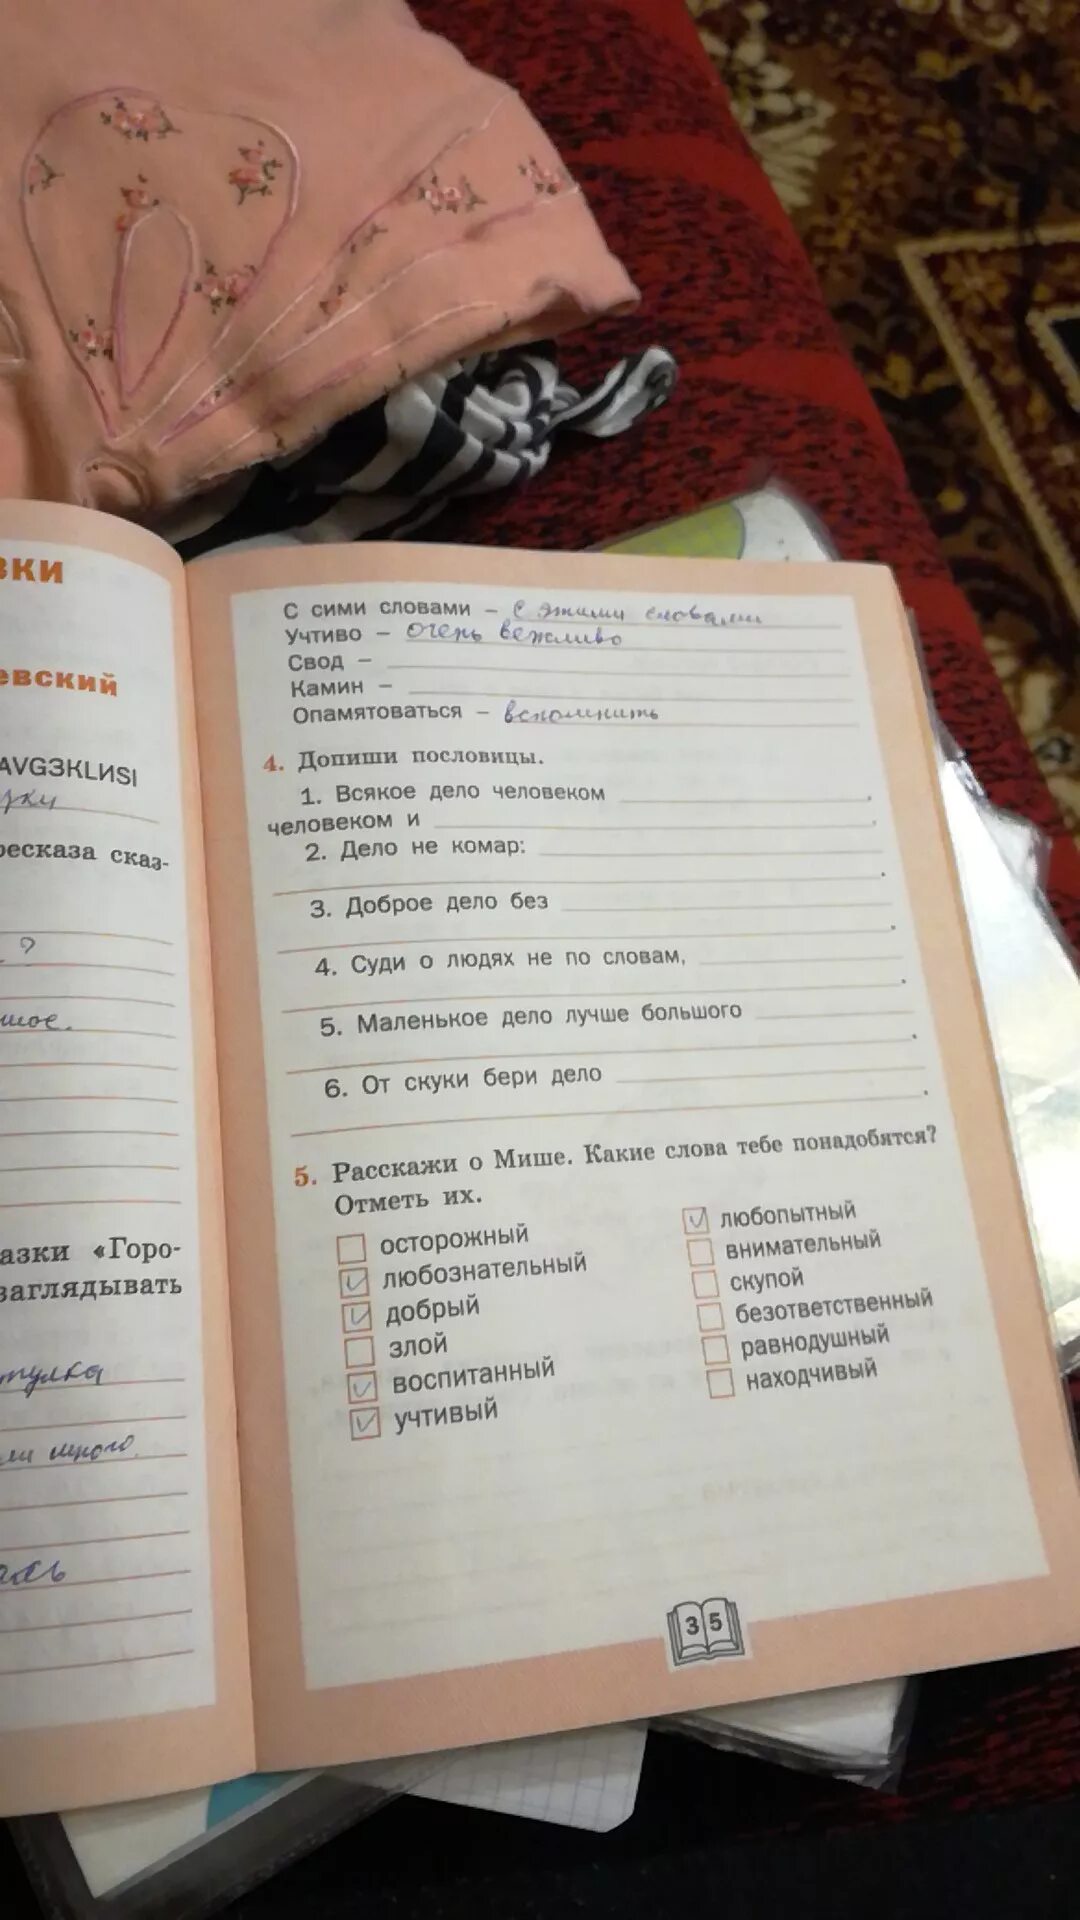 зки
евский
AVGЗKLИSI
ресказа сказ-
?
шое.
азки «Горо-
заглядывать
тулка
ли много
ась
С сими словами – с этими словами
Учтиво – очень вежливо
Свод –
Камин –
Опамятоваться – вспомнить
4. Допиши пословицы.
1. Всякое дело человеком
человеком и .
2. Дело не комар:
3. Доброе дело без
4. Суди о людях не по словам,
5. Маленькое дело лучше большого
6. От скуки бери дело
5. Расскажи о Мише. Какие слова тебе понадобятся?
Отметь их.
осторожный
любознательный
добрый
злой
воспитанный
учтивый
любопытный
внимательный
скупой
безответственный
равнодушный
находчивый
35